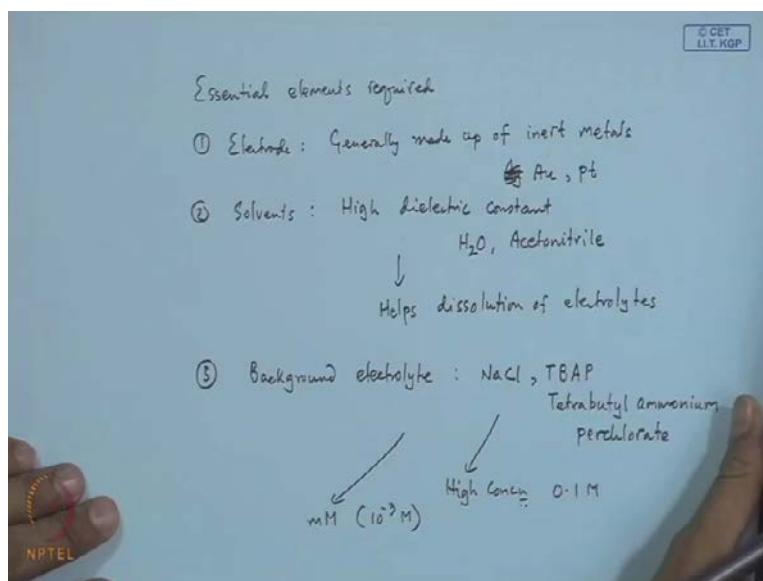 © CET
I.I.T. KGP
Essential elements required
① Electrode : Generally made up of inert metals
Au, Pt
② Solvents : High dielectric constant
H₂O, Acetonitrile
↓
Helps dissolution of electrolytes
③ Background electrolyte : NaCl, TBAP
Tetrabutyl ammonium
perchlorate
High Concn 0.1 M
mM (10⁻³ M)
NPTEL